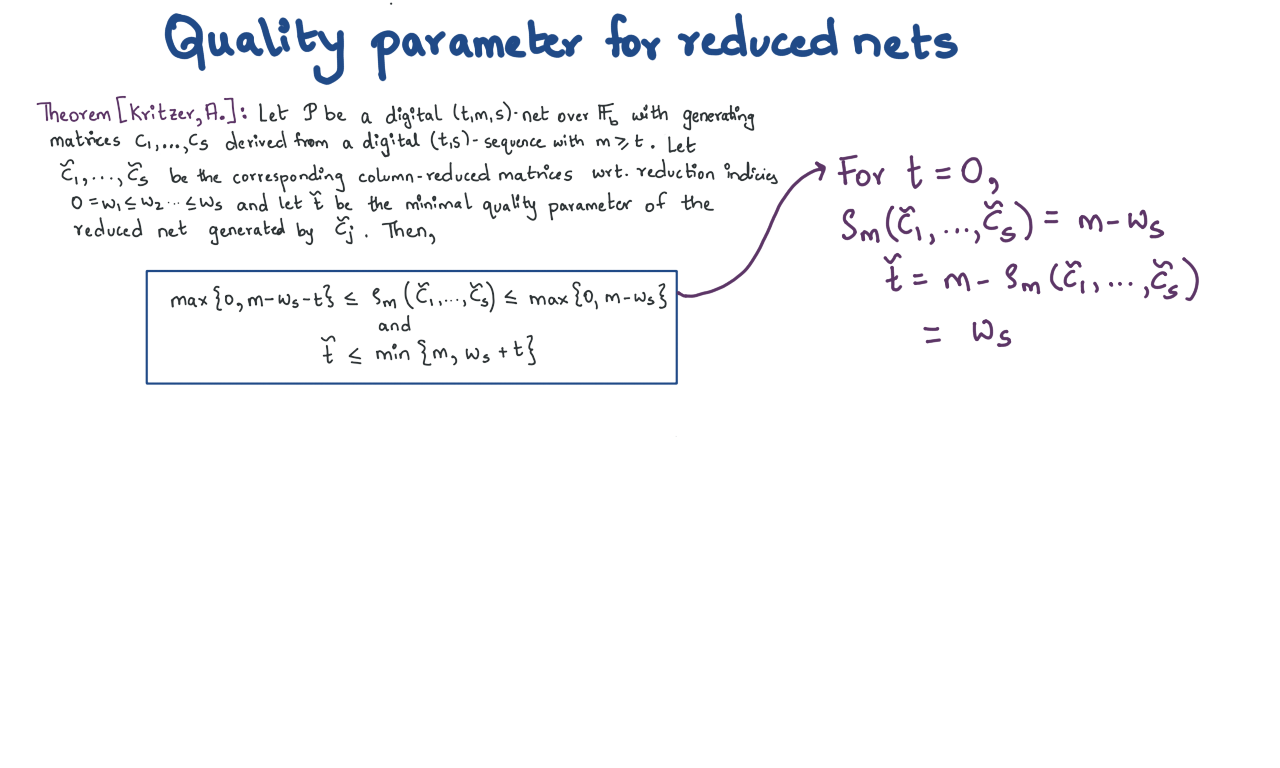 Quality parameter for reduced nets
Theorem [Kritzer, A.]: Let P be a digital (t,m,s)-net over 𝔽_b with generating
matrices C₁,...,Cs derived from a digital (t,s)-sequence with m ≥ t. Let
C̆₁,...,C̆s be the corresponding column-reduced matrices wrt. reduction indicies
0 = w₁ ≤ w₂ ... ≤ ws and let t̆ be the minimal quality parameter of the
reduced net generated by C̆j. Then,
max{0, m-ws-t} ≤ ρm(C̆₁,...,C̆s) ≤ max{0, m-ws}
and
t̆ ≤ min{m, ws+t}
For t = 0,
ρm(C̆₁,...,C̆s) = m-ws
t̆ = m - ρm(C̆₁,...,C̆s)
= ws